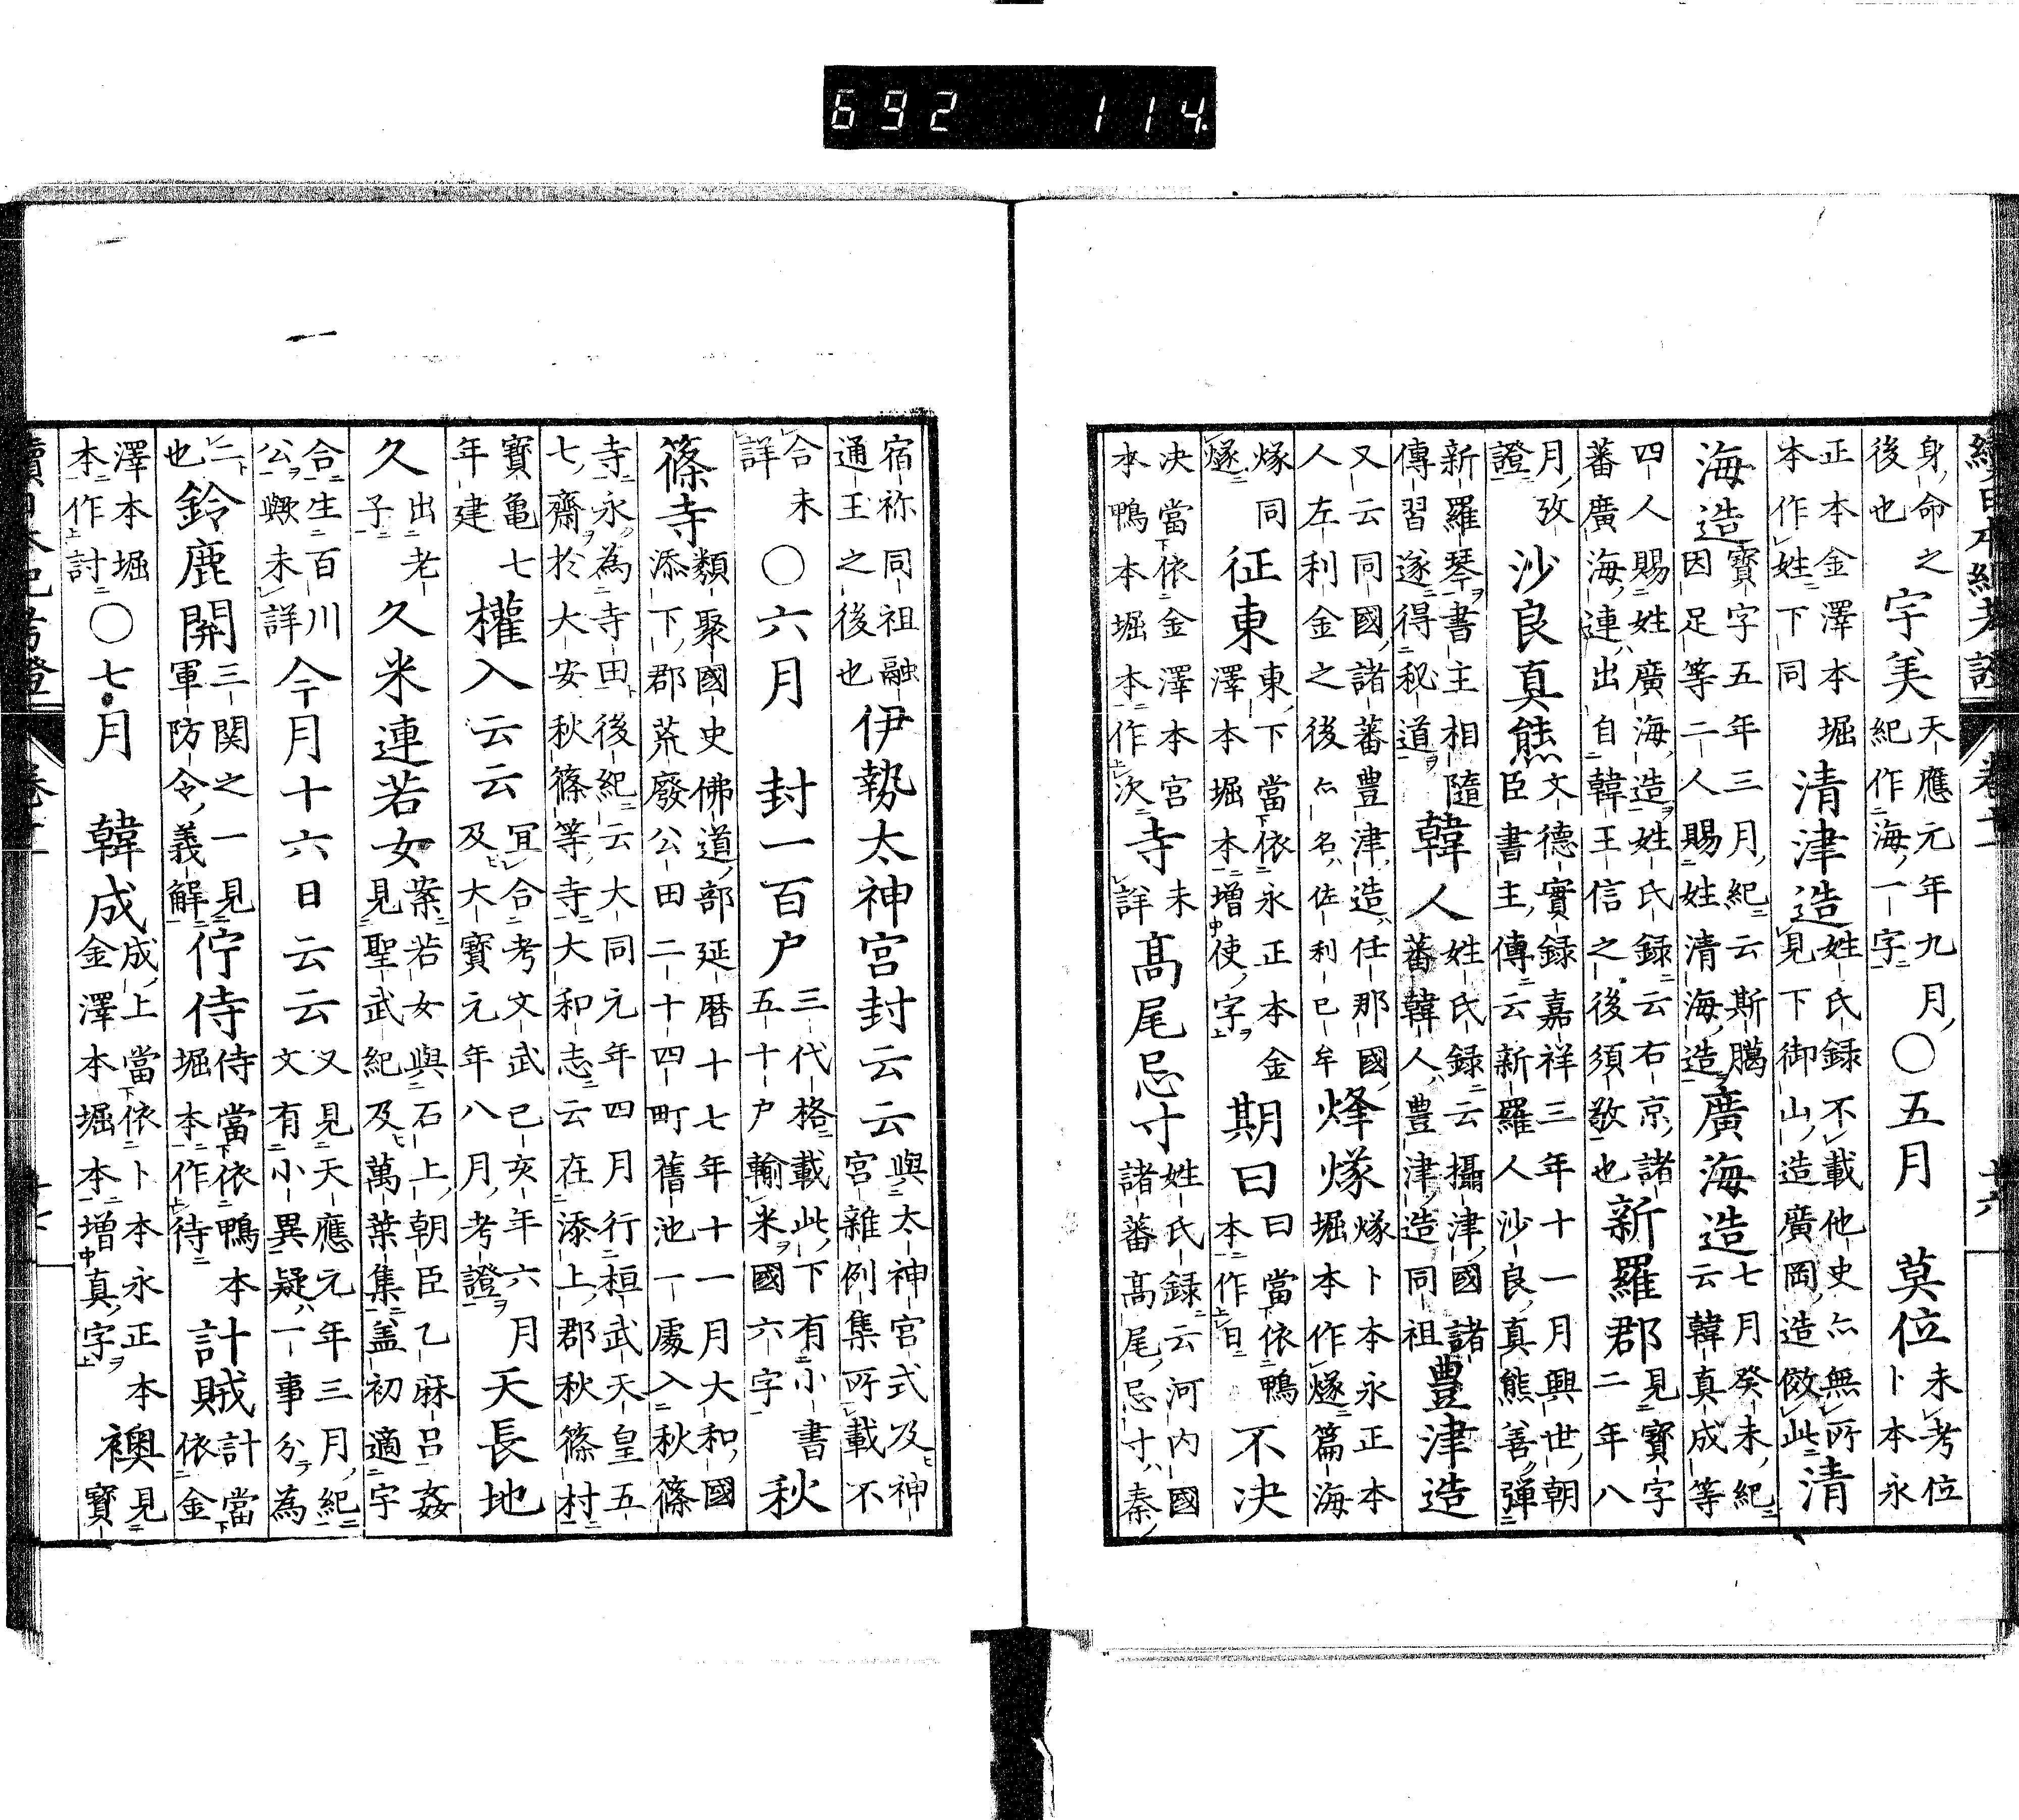 692 114
續日本紀考證
身命之後也宇美天應元年九月紀作海一字〇五月 莫位未考位卜本永
正本金澤本堀本作姓下同清津造姓氏録不載他史亦無所見下御山造廣岡造倣此清
海造寶字五年三月紀云斯﨟因足等二人賜姓清海造廣海造七月癸未紀云韓真成等
四人賜姓廣海造姓氏録云右京諸蕃廣海連出自韓王信之後須敬也新羅郡見寶字二年八
月攷證沙良真熊文德實録嘉祥三年十一月興世朝臣書主傳云新羅人沙良真熊善彈
新羅琴書主相隨傳習遂得秘道韓人姓氏録云攝津國諸蕃韓人豊津造同祖豊津造
又云同國諸蕃豊津造任那國人左利金之後亦名佐利已牟烽燧燧卜本永正本堀本作𤑯篇海
燧同𤑯征東東下當依永正本金澤本堀本增使字期日日當依鴨本作曰不决
决當依金澤本宮本鴨本堀本作次寺未詳髙尾忌寸姓氏録云河内國諸蕃髙尾忌寸秦
宿祢同祖融通王之後也伊勢太神宮封云云與太神宮式及神宮雜例集所載不
合未詳〇六月 封一百户三代格載此下有小書五十户輸米國六字秋
篠寺類聚國史佛道部延暦十七年十一月大和國添下郡荒廢公田二十四町舊池一處入秋篠
寺永為寺田後紀云大同元年四月行桓武天皇五七齋於大安秋篠等寺大和志云在添上郡秋篠村
寶亀七年建權入云云冝合考文武己亥年六月及大寶元年八月考證天長地
久出老子久米連若女案若女與石上朝臣乙麻吕姦見聖武紀及萬葉集盖初適宇
合生百川公歟未詳今月十六日云云又見天應元年三月紀文有小異疑一事分為
二也鈴鹿關三関之一見軍防令義解佇侍侍當依鴨本堀本作待計賊計當依金
澤本堀本作討〇七月 韓成成上當依卜本永正本金澤本堀本增真字襖見寶